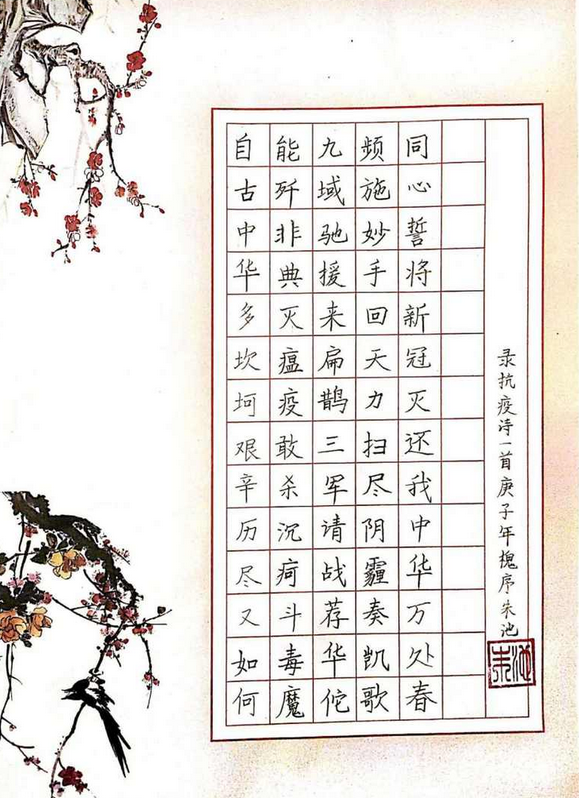 自古中华多坎坷艰辛历尽又如何
能歼非典灭瘟疫敢杀沉疴斗毒魔
九域驰援来扁鹊三军请战荐华佗
频施妙手回天力扫尽阴霾奏凯歌
同心誓将新冠灭还我中华万处春
录抗疫诗一首庚子年槐序朱池
朱池